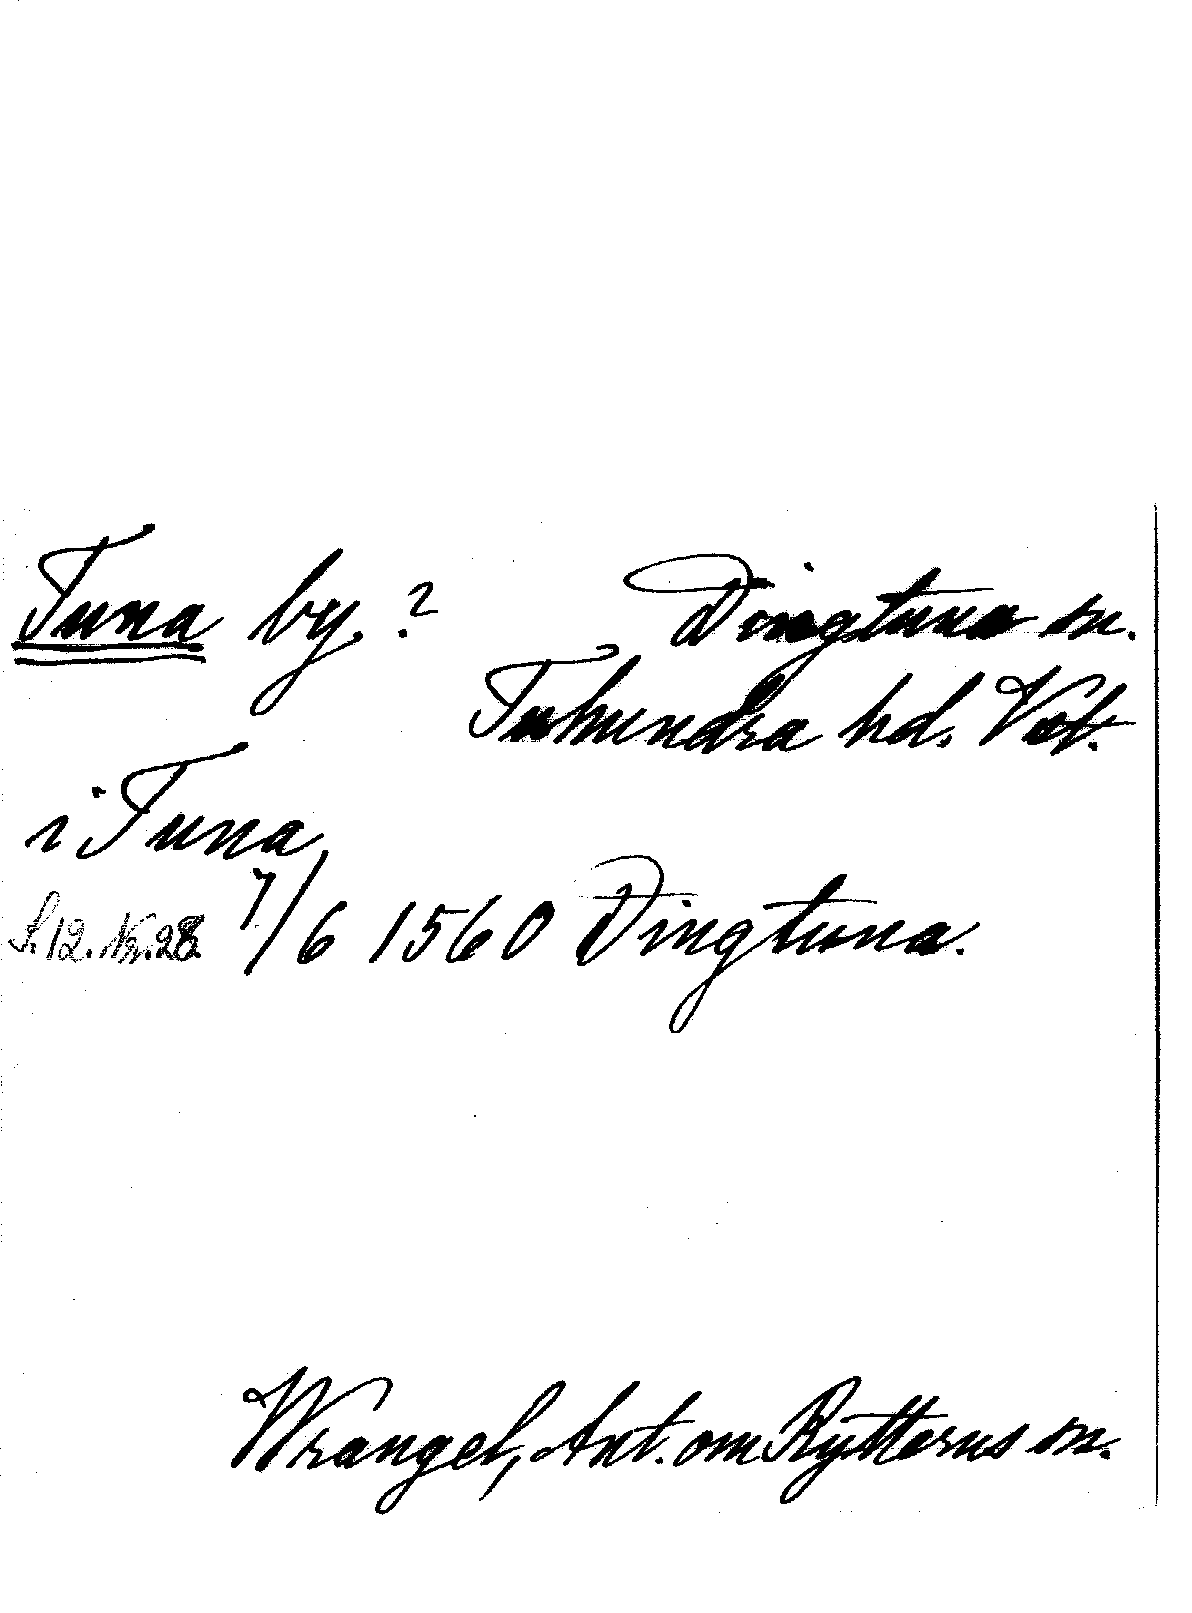 Tuna by. ? Dingtuna sn.
Tuhundra hd. Vstl.
i Tuna
S. 12. Nr. 28. 7/6 1560 Dingtuna.
Wrangel, Ant. om Rytterns sn.